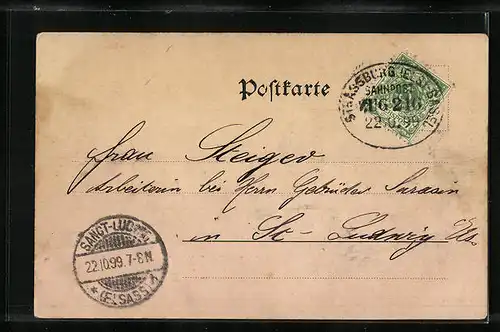 Postkarte
STRASSBURG (ELS) BASEL
BAHNPOST
ZUG 216
22.10.99
Frau Steiger
Arbeiterin bei Herrn Gebrüder Sarasin
in St. Ludwig Els
SANCT-LUDWIG
22.10.99.7-8N
* (ELSASS)